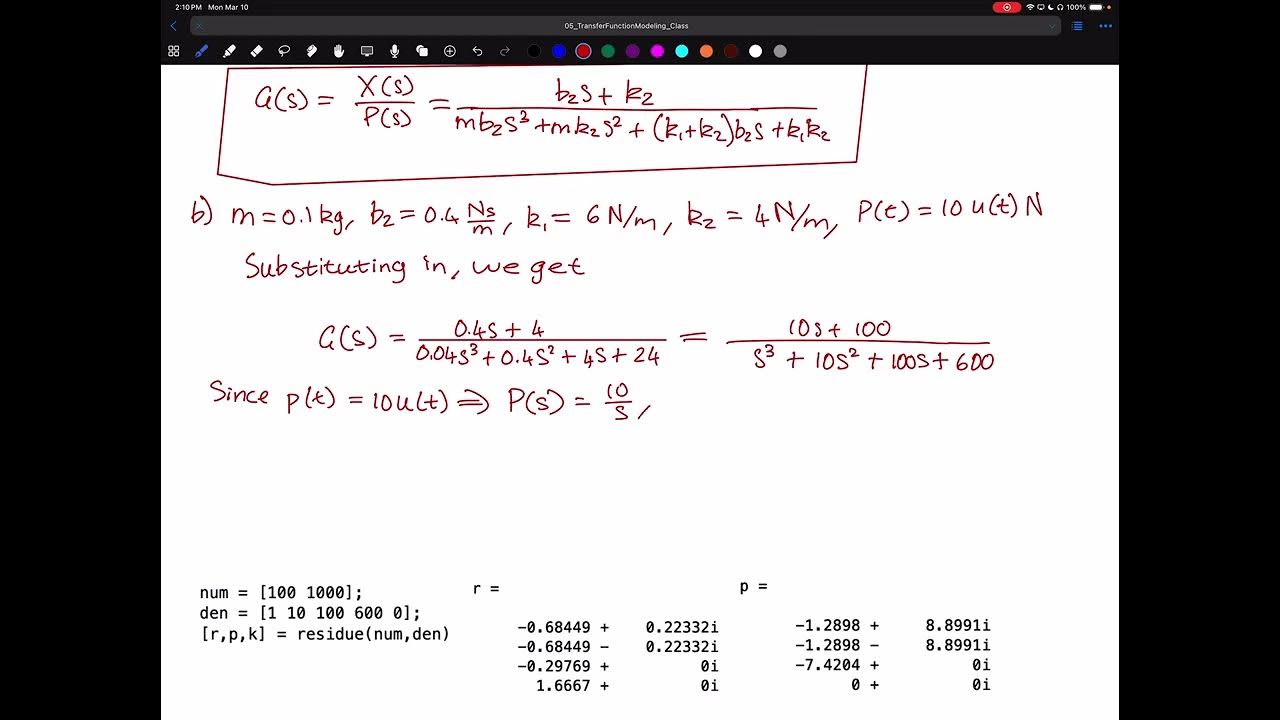 2:10 PM Mon Mar 10
100%
05_TransferFunctionModeling_Class
G(s) = X(s)/P(s) = (b₂s + k₂)/(mb₂s³ + mk₂s² + (k₁+k₂)b₂s + k₁k₂)
b) m = 0.1 kg, b₂ = 0.4 Ns/m, k₁ = 6 N/m, k₂ = 4 N/m, P(t) = 10 u(t) N
Substituting in, we get
G(s) = (0.4s + 4)/(0.04s³ + 0.4s² + 4s + 24) = (10s + 100)/(s³ + 10s² + 100s + 600)
Since p(t) = 10u(t) ⇒ P(s) = 10/s,
num = [100 1000];
den = [1 10 100 600 0];
[r,p,k] = residue(num,den)
r =
-0.68449 + 0.22332i
-0.68449 - 0.22332i
-0.29769 + 0i
1.6667 + 0i
p =
-1.2898 + 8.8991i
-1.2898 - 8.8991i
-7.4204 + 0i
0 + 0i